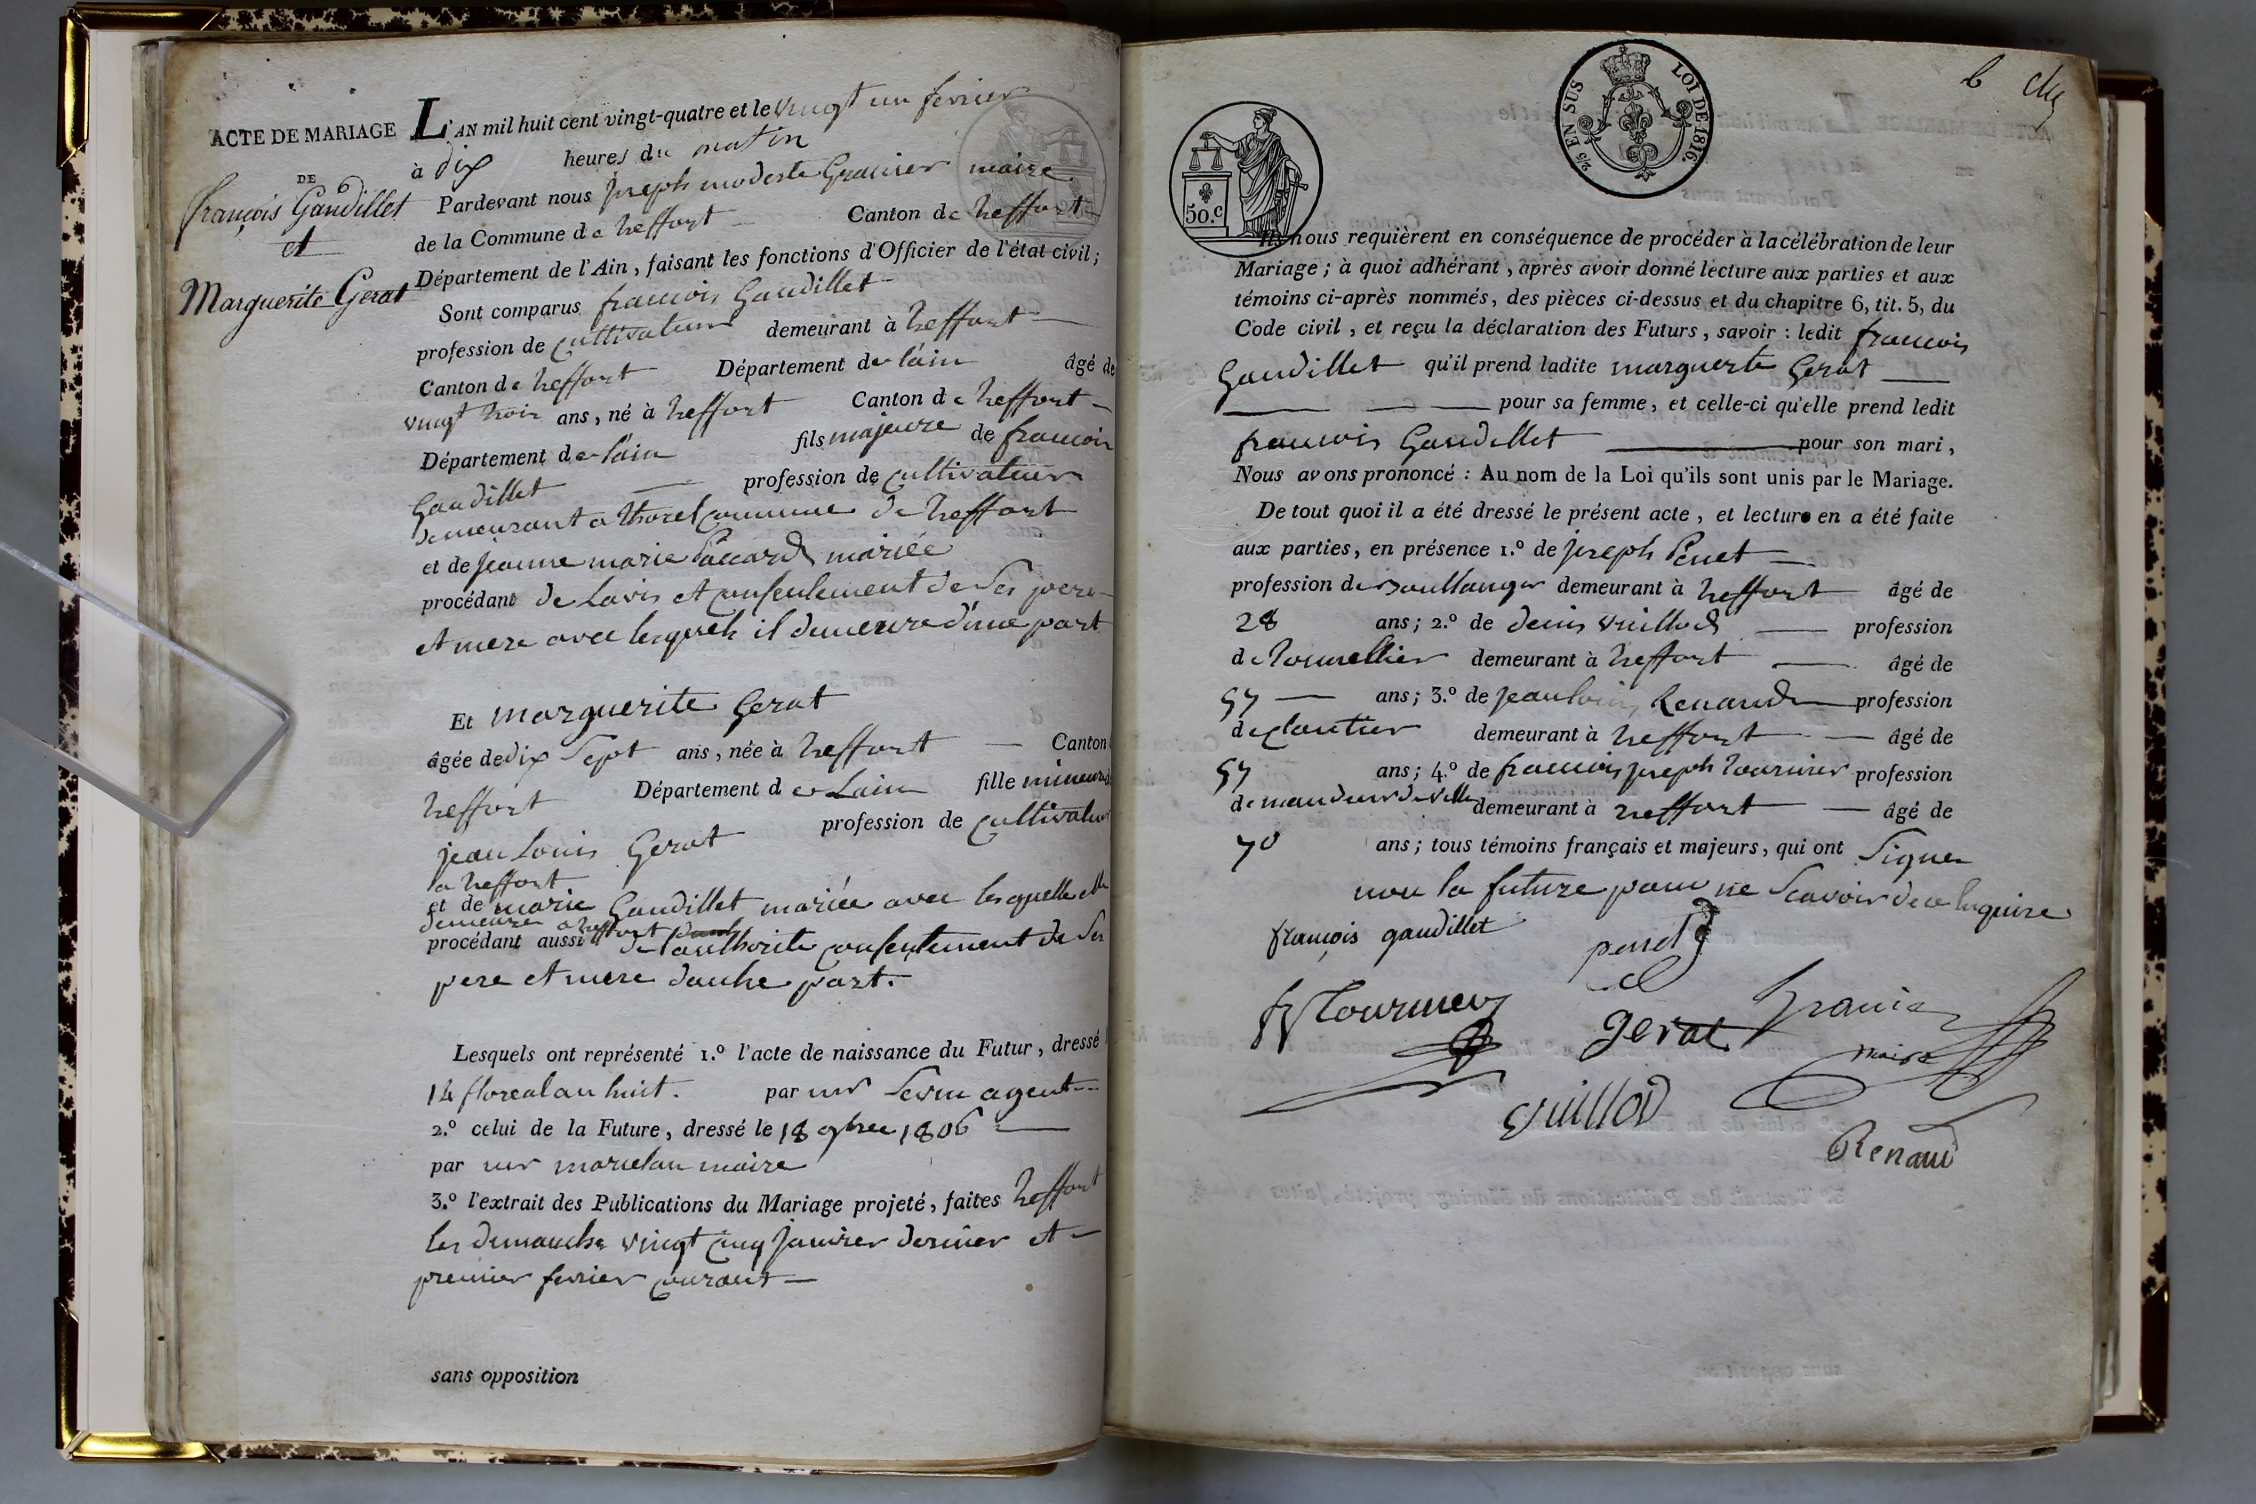 ACTE DE MARIAGE
DE
françois Gaudillet
et
Marguerite Gerat
L'AN mil huit cent vingt-quatre et le vingt un fevrier
à dix heures du matin
Pardevant nous joseph modeste Granier maire
de la Commune de treffort Canton de treffort
Département de l'Ain, faisant les fonctions d'Officier de l'état civil;
Sont comparus francois Gaudillet
profession de cultivateur demeurant à treffort
Canton de treffort Département de lain âgé de
vingt trois ans, né à treffort Canton de treffort
Département de lain fils majeure de francois
Gaudillet profession de cultivateur
demeurant a thorel commune de treffort
et de jeanne marie Paccard mariée
procédant de Lavis et consentement de Ses pere
et mere avec lesquels il demeure d'une part
Et marguerite Gerat
âgée de dix Sept ans, née à treffort Canton
treffort Département de Lain fille mineure
jean Louis Gerat profession de cultivateur
a treffort
et de marie Gaudillet mariée avec lesquelle elle
demeure a treffort
procédant aussi de lauthorite consentement de Ses
pere et mere dautre part.
Lesquels ont représenté 1.º l'acte de naissance du Futur, dressé
14 floreal an huit. par mr agent
2.º celui de la Future, dressé le 18 9bre 1806
par mr maire
3.º l'extrait des Publications du Mariage projeté, faites treffort
les dimanche vingt cinq janvier dernier et
premier fevrier courant
sans opposition
50.c
2/5 EN SUS LOI DE 1816.
Ils nous requièrent en conséquence de procéder à la célébration de leur
Mariage; à quoi adhérant, après avoir donné lecture aux parties et aux
témoins ci-après nommés, des pièces ci-dessus et du chapitre 6, tit. 5, du
Code civil, et reçu la déclaration des Futurs, savoir: ledit francois
Gaudillet qu'il prend ladite marguerte Gerat
pour sa femme, et celle-ci qu'elle prend ledit
francois Gaudillet pour son mari,
Nous avons prononcé: Au nom de la Loi qu'ils sont unis par le Mariage.
De tout quoi il a été dressé le présent acte, et lecture en a été faite
aux parties, en présence 1.º de joseph Penet
profession de Boullanger demeurant à treffort âgé de
28 ans; 2.º de denis Vuillod profession
de tonnellier demeurant à treffort âgé de
57 ans; 3.º de jean louis Renaud profession
de cloutier demeurant à treffort âgé de
57 ans; 4.º de francois joseph tournier profession
de mandeur de ville demeurant à treffort âgé de
70 ans; tous témoins français et majeurs, qui ont Signer
non la future pour ne Scavoir de ce enquise
françois gaudillet penet
fJ Tournier gerat Granier
maire
Vuillod
Renaud